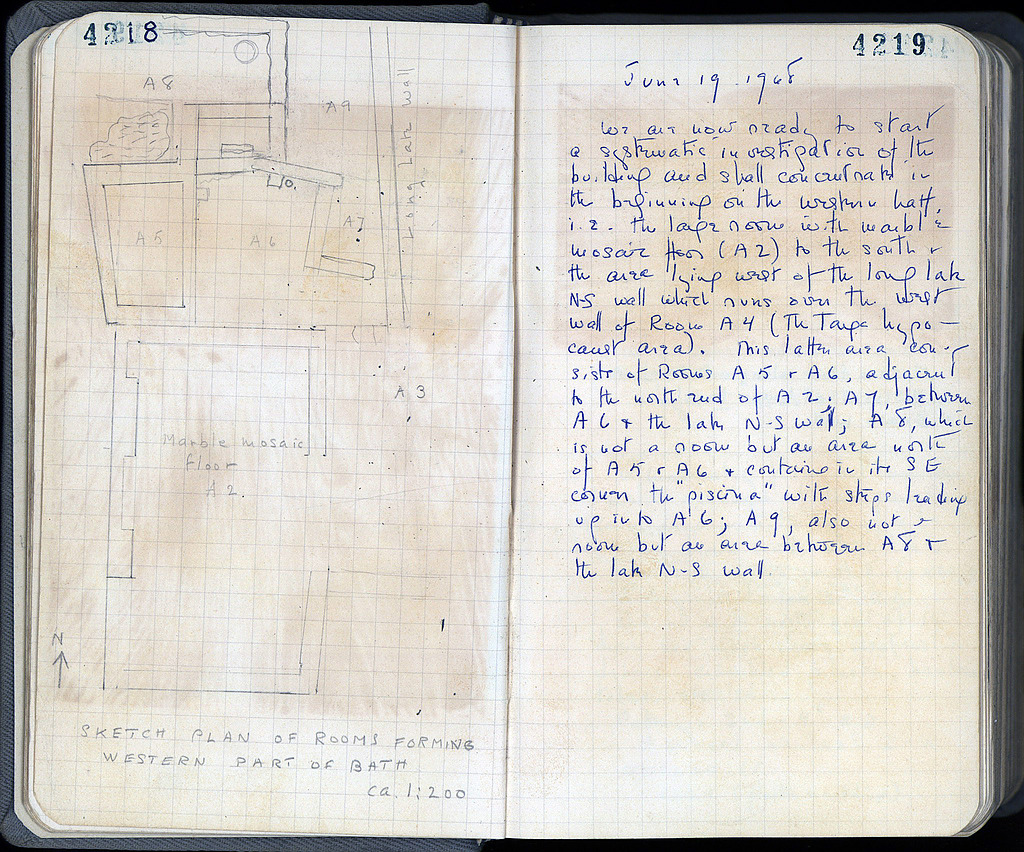 4218
A 8
A 9
Long Late Wall
A 5
A 6
A 7
A 3
Marble mosaic
floor
A 2
N
SKETCH PLAN OF ROOMS FORMING
WESTERN PART OF BATH
ca. 1:200
4219
June 19 1968
We are now ready to start
a systematic investigation of the
building and shall concentrate in
the beginning on the western half,
i.e. the large room with marble
mosaic floor (A 2) to the south +
the area lying west of the long late
N-S wall which runs over the west
wall of Room A 4 (The Large hypo-
caust area). This latter area con-
sists of Rooms A 5 + A 6, adjacent
to the north end of A 2; A 7, between
A 6 + the late N-S wall; A 8, which
is not a room but an area north
of A 5 + A 6 + contains in its SE
corner the "piscina" with steps leading
up into A 6; A 9, also not a
room but an area between A 8 +
the late N-S wall.